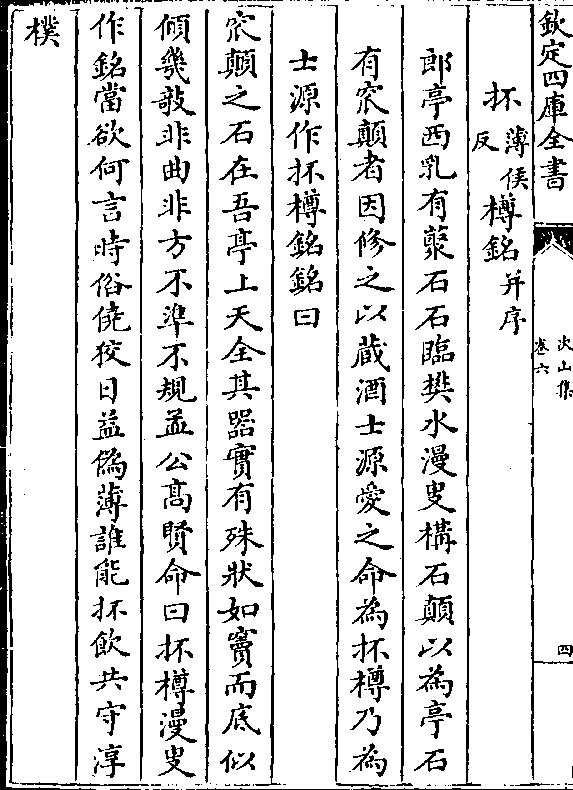 欽定四庫全書
次山集
卷六
四
抔薄侯反樽銘并序
郎亭西乳有藂石石臨樊水漫叟構石顛以為亭石
有窊顛者因修之以藏酒士源愛之命為抔樽乃為
士源作抔樽銘銘曰
窊顛之石在吾亭上天全其器實有殊狀如竇而底似
傾幾敧非曲非方不準不規孟公高賢命曰抔樽漫叟
作銘當欲何言時俗僥狡日益僞薄誰能抔飲共守淳
樸